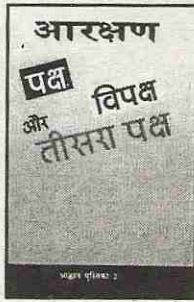 आरक्षण
पक्ष
विपक्ष
और
तीसरा पक्ष
आह्वान पुस्तिका 2